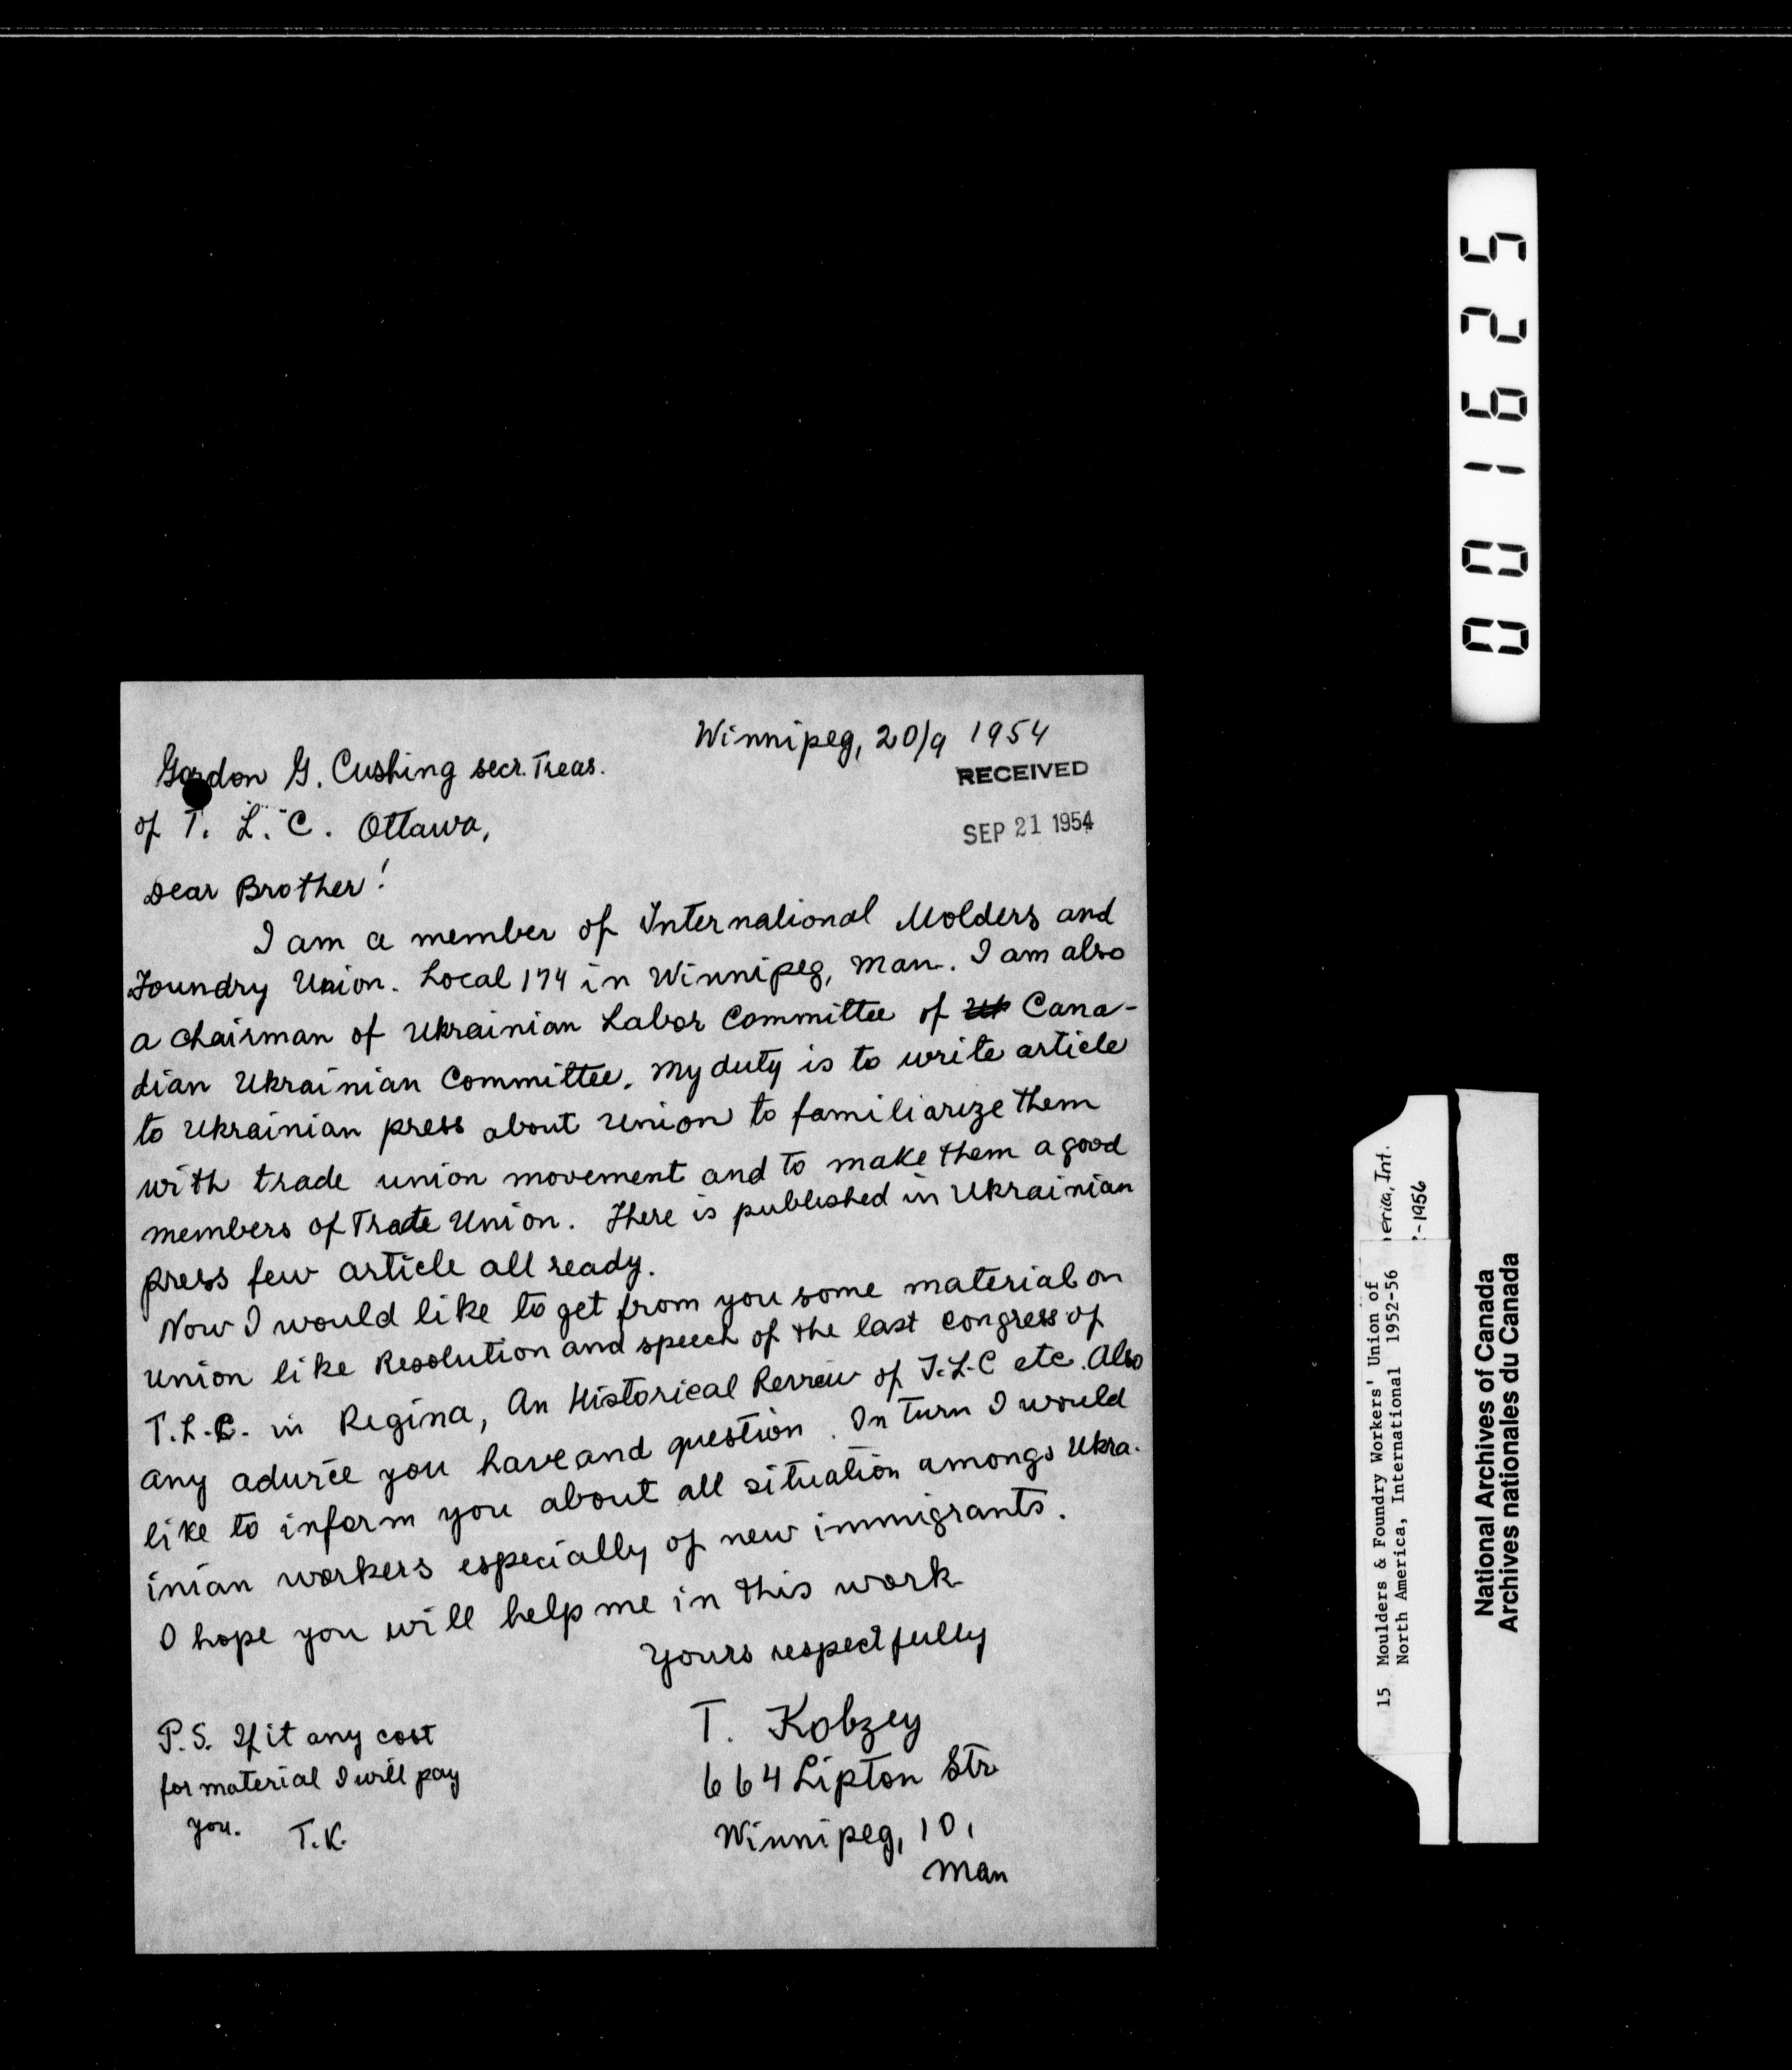 Winnipeg, 20/9 1954
Gordon G. Cushing secr. Treas.
RECEIVED
of T. L. C. Ottawa,
SEP 21 1954
Dear Brother!
I am a member of International Molders and
Foundry Union. Local 174 in Winnipeg, Man. I am also
a chairman of Ukrainian Labor Committee of Cana-
dian Ukrainian Committee. My duty is to write article
to Ukrainian press about Union to familiarize them
with trade union movement and to make them a good
members of Trade Union. There is published in Ukrainian
press few article all ready.
Now I would like to get from you some material on
Union like Resolution and speech of the last congress of
T.L.C. in Regina, An Historical Rewiew of T.L.C etc. Also
any advice you have and question. In turn I would
like to inform you about all situation amongs Ukra-
inian workers especially of new immigrants.
I hope you will help me in this work
Yours respectfully
T. Kobzey
664 Lipton Str
Winnipeg, 10,
Man
P.S. If it any cost
for material I will pay
you. T.K.
001625
erica, Int.
-1956
15 Moulders & Foundry Workers' Union of
North America, International 1952-56
National Archives of Canada
Archives nationales du Canada